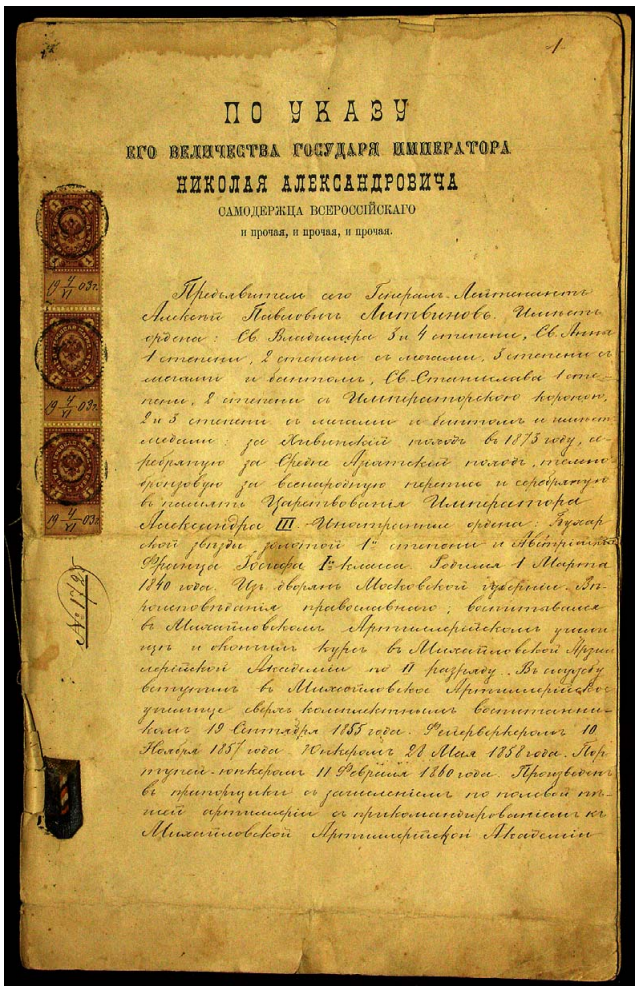 1
ПО УКАЗУ
ЕГО ВЕЛИЧЕСТВА ГОСУДАРЯ ИМПЕРАТОРА
НИКОЛАЯ АЛЕКСАНДРОВИЧА
САМОДЕРЖЦА ВСЕРОССІЙСКАГО
и прочая, и прочая, и прочая.
19 4/VI 03 г.
19 4/VI 03 г.
19 4/VI 03 г.
Предъявитель сего Генералъ-Лейтенантъ
Алексѣй Павловичъ Литвиновъ. Имѣетъ
ордена: Св. Владиміра 3 и 4 степени, Св. Анны
1 степени, 2 степени съ мечами, 3 степени съ
мечами и бантомъ, Св. Станислава 1 сте-
пени, 2 степени съ Императорскою короною,
2 и 3 степени съ мечами и бантомъ и имѣетъ
медали: за Хивинскій походъ въ 1873 году, се-
ребряную за Средне Азіатскій походъ, темно-
бронзовую за всенародную перепись и серебряную
въ память Царствованія Императора
Александра III. Иностранные ордена: Бухар
ской звѣзды золотой 1й степени и Австрійскій
Франца Іосифа 1го класса. Родился 1 Марта
1840 года. Изъ дворянъ Московской губерніи. Вѣ-
роисповѣданія православнаго; воспитывался
въ Михайловскомъ Артиллерійскомъ учили-
щѣ и окончилъ курсъ въ Михайловской Арти
лерійской Академіи по II разряду. Въ службу
вступилъ въ Михайловское Артиллерійское
училище сверхъ комплектнымъ воспитанни-
комъ 19 Сентября 1855 года. Фейерверкеромъ 10
Ноября 1857 года. Юнкеромъ 28 Мая 1858 года. Пор
тупей-юнкеромъ 11 Февраля 1860 года. Произведенъ
въ прапорщики съ зачисленіемъ по полевой пѣ-
шей артиллеріи съ прикомандированіемъ къ
Михайловской Артиллерійской Академіи